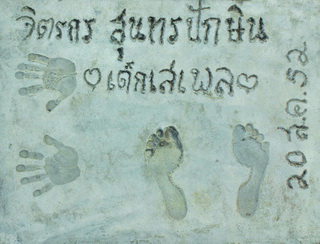 จิตรกร สุนทรปักษิน
♡เด็กเสเพล♡
20 ส.ค. 52